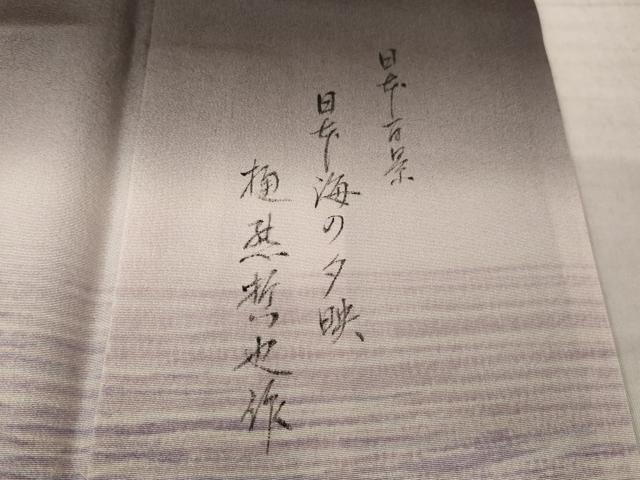 日本百景
日本海の夕映
樋熊哲也作